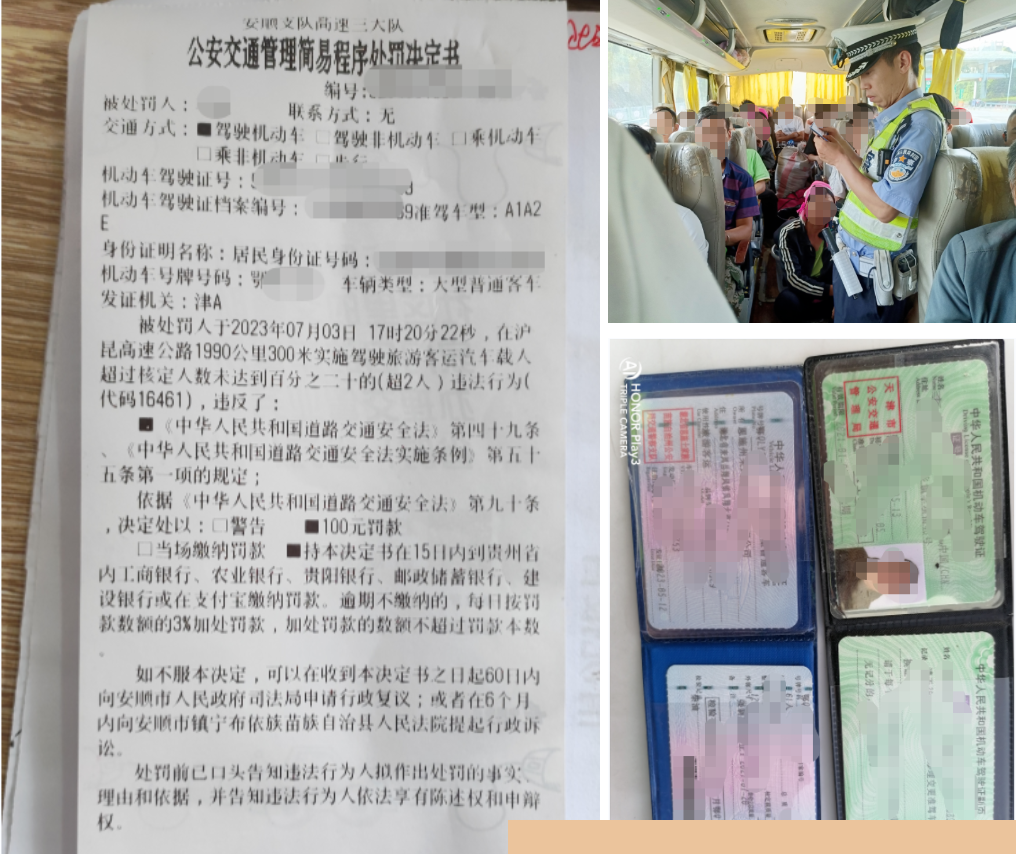 安顺支队高速三大队
公安交通管理简易程序处罚决定书
编号:
被处罚人: 联系方式:无
交通方式:■驾驶机动车 □驾驶非机动车 □乘机动车
□乘非机动车 □步行
机动车驾驶证号:
机动车驾驶证档案编号: 准驾车型:A1A2
E
身份证明名称:居民身份证号码:
机动车号牌号码:鄂 车辆类型:大型普通客车
发证机关:津A
被处罚人于2023年07月03日 17时20分22秒,在沪
昆高速公路1990公里300米实施驾驶旅游客运汽车载人
超过核定人数未达到百分之二十的(超2人)违法行为(
代码16461),违反了:
■《中华人民共和国道路交通安全法》第四十九条
、《中华人民共和国道路交通安全法实施条例》第五十
五条第一项的规定;
依据《中华人民共和国道路交通安全法》第九十条
,决定处以:□警告 ■100元罚款
□当场缴纳罚款 ■持本决定书在15日内到贵州省
内工商银行、农业银行、贵阳银行、邮政储蓄银行、建
设银行或在支付宝缴纳罚款。逾期不缴纳的,每日按罚
款数额的3%加处罚款,加处罚款的数额不超过罚款本数
。
如不服本决定,可以在收到本决定书之日起60日内
向安顺市人民政府司法局申请行政复议;或者在6个月
内向安顺市镇宁布依族苗族自治县人民法院提起行政诉
讼。
处罚前已口头告知违法行为人拟作出处罚的事实、
理由和依据,并告知违法行为人依法享有陈述权和申辩
权。
HONOR Play3
TRIPLE CAMERA
中华人民共和国机动车驾驶证
天津市
公安交通
管理局
中华人民共和国机动车驾驶证副页